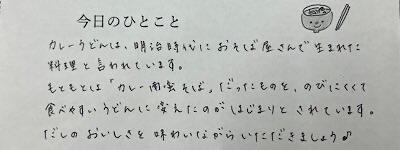 今日のひとこと
カレーうどんは、明治時代におそば屋さんで生まれた
料理と言われています。
もともとは「カレー南蛮そば」だったものを、のびにくくて
食べやすいうどんに変えたのがはじまりとされています。
だしのおいしさを味わいながらいただきましょう♪